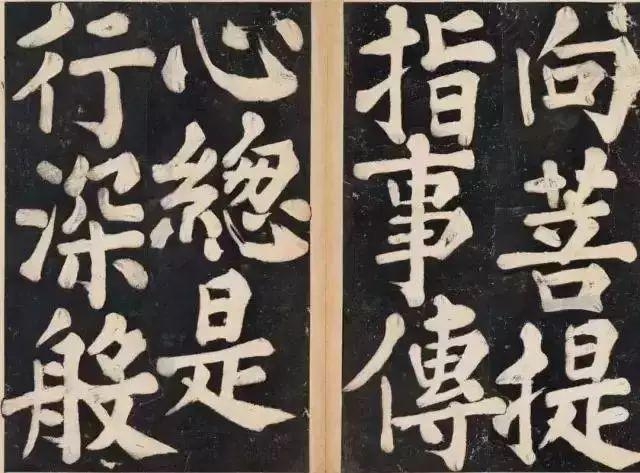 向菩提
指事傳
心總是
行深般